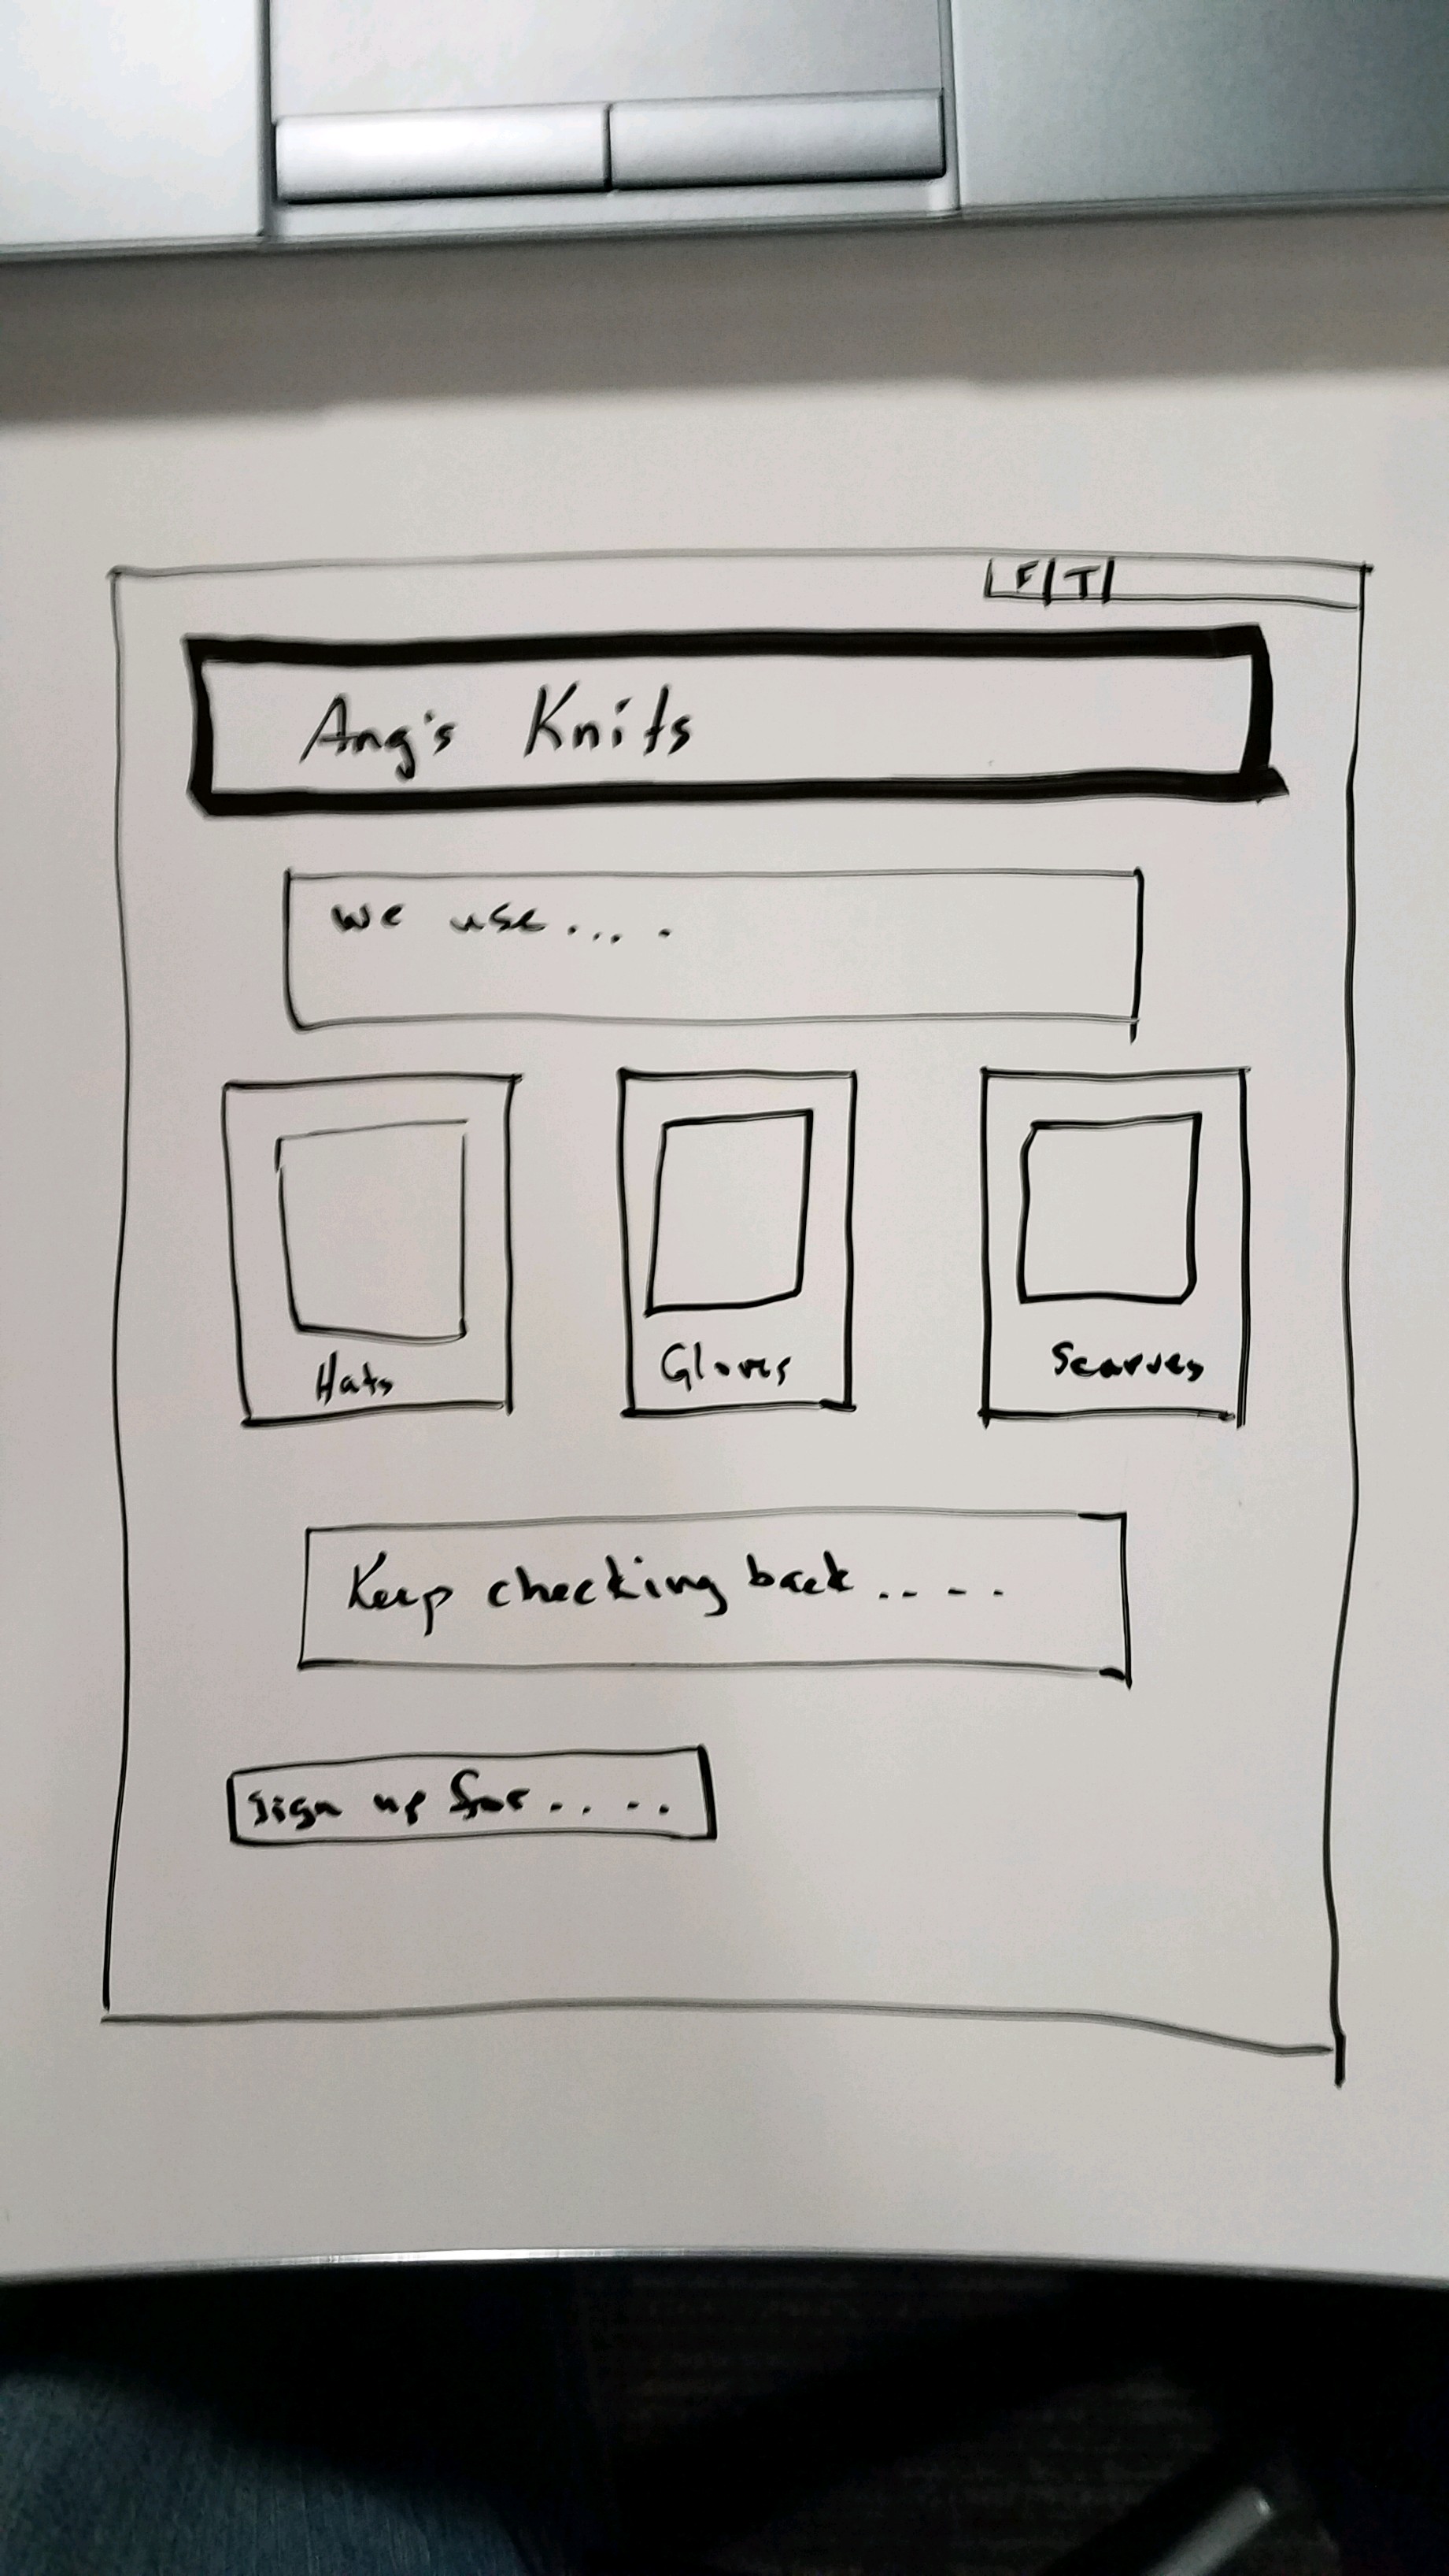 F T
Ang's Knits
we use....
Hats
Gloves
Scarves
Keep checking back....
sign up for....